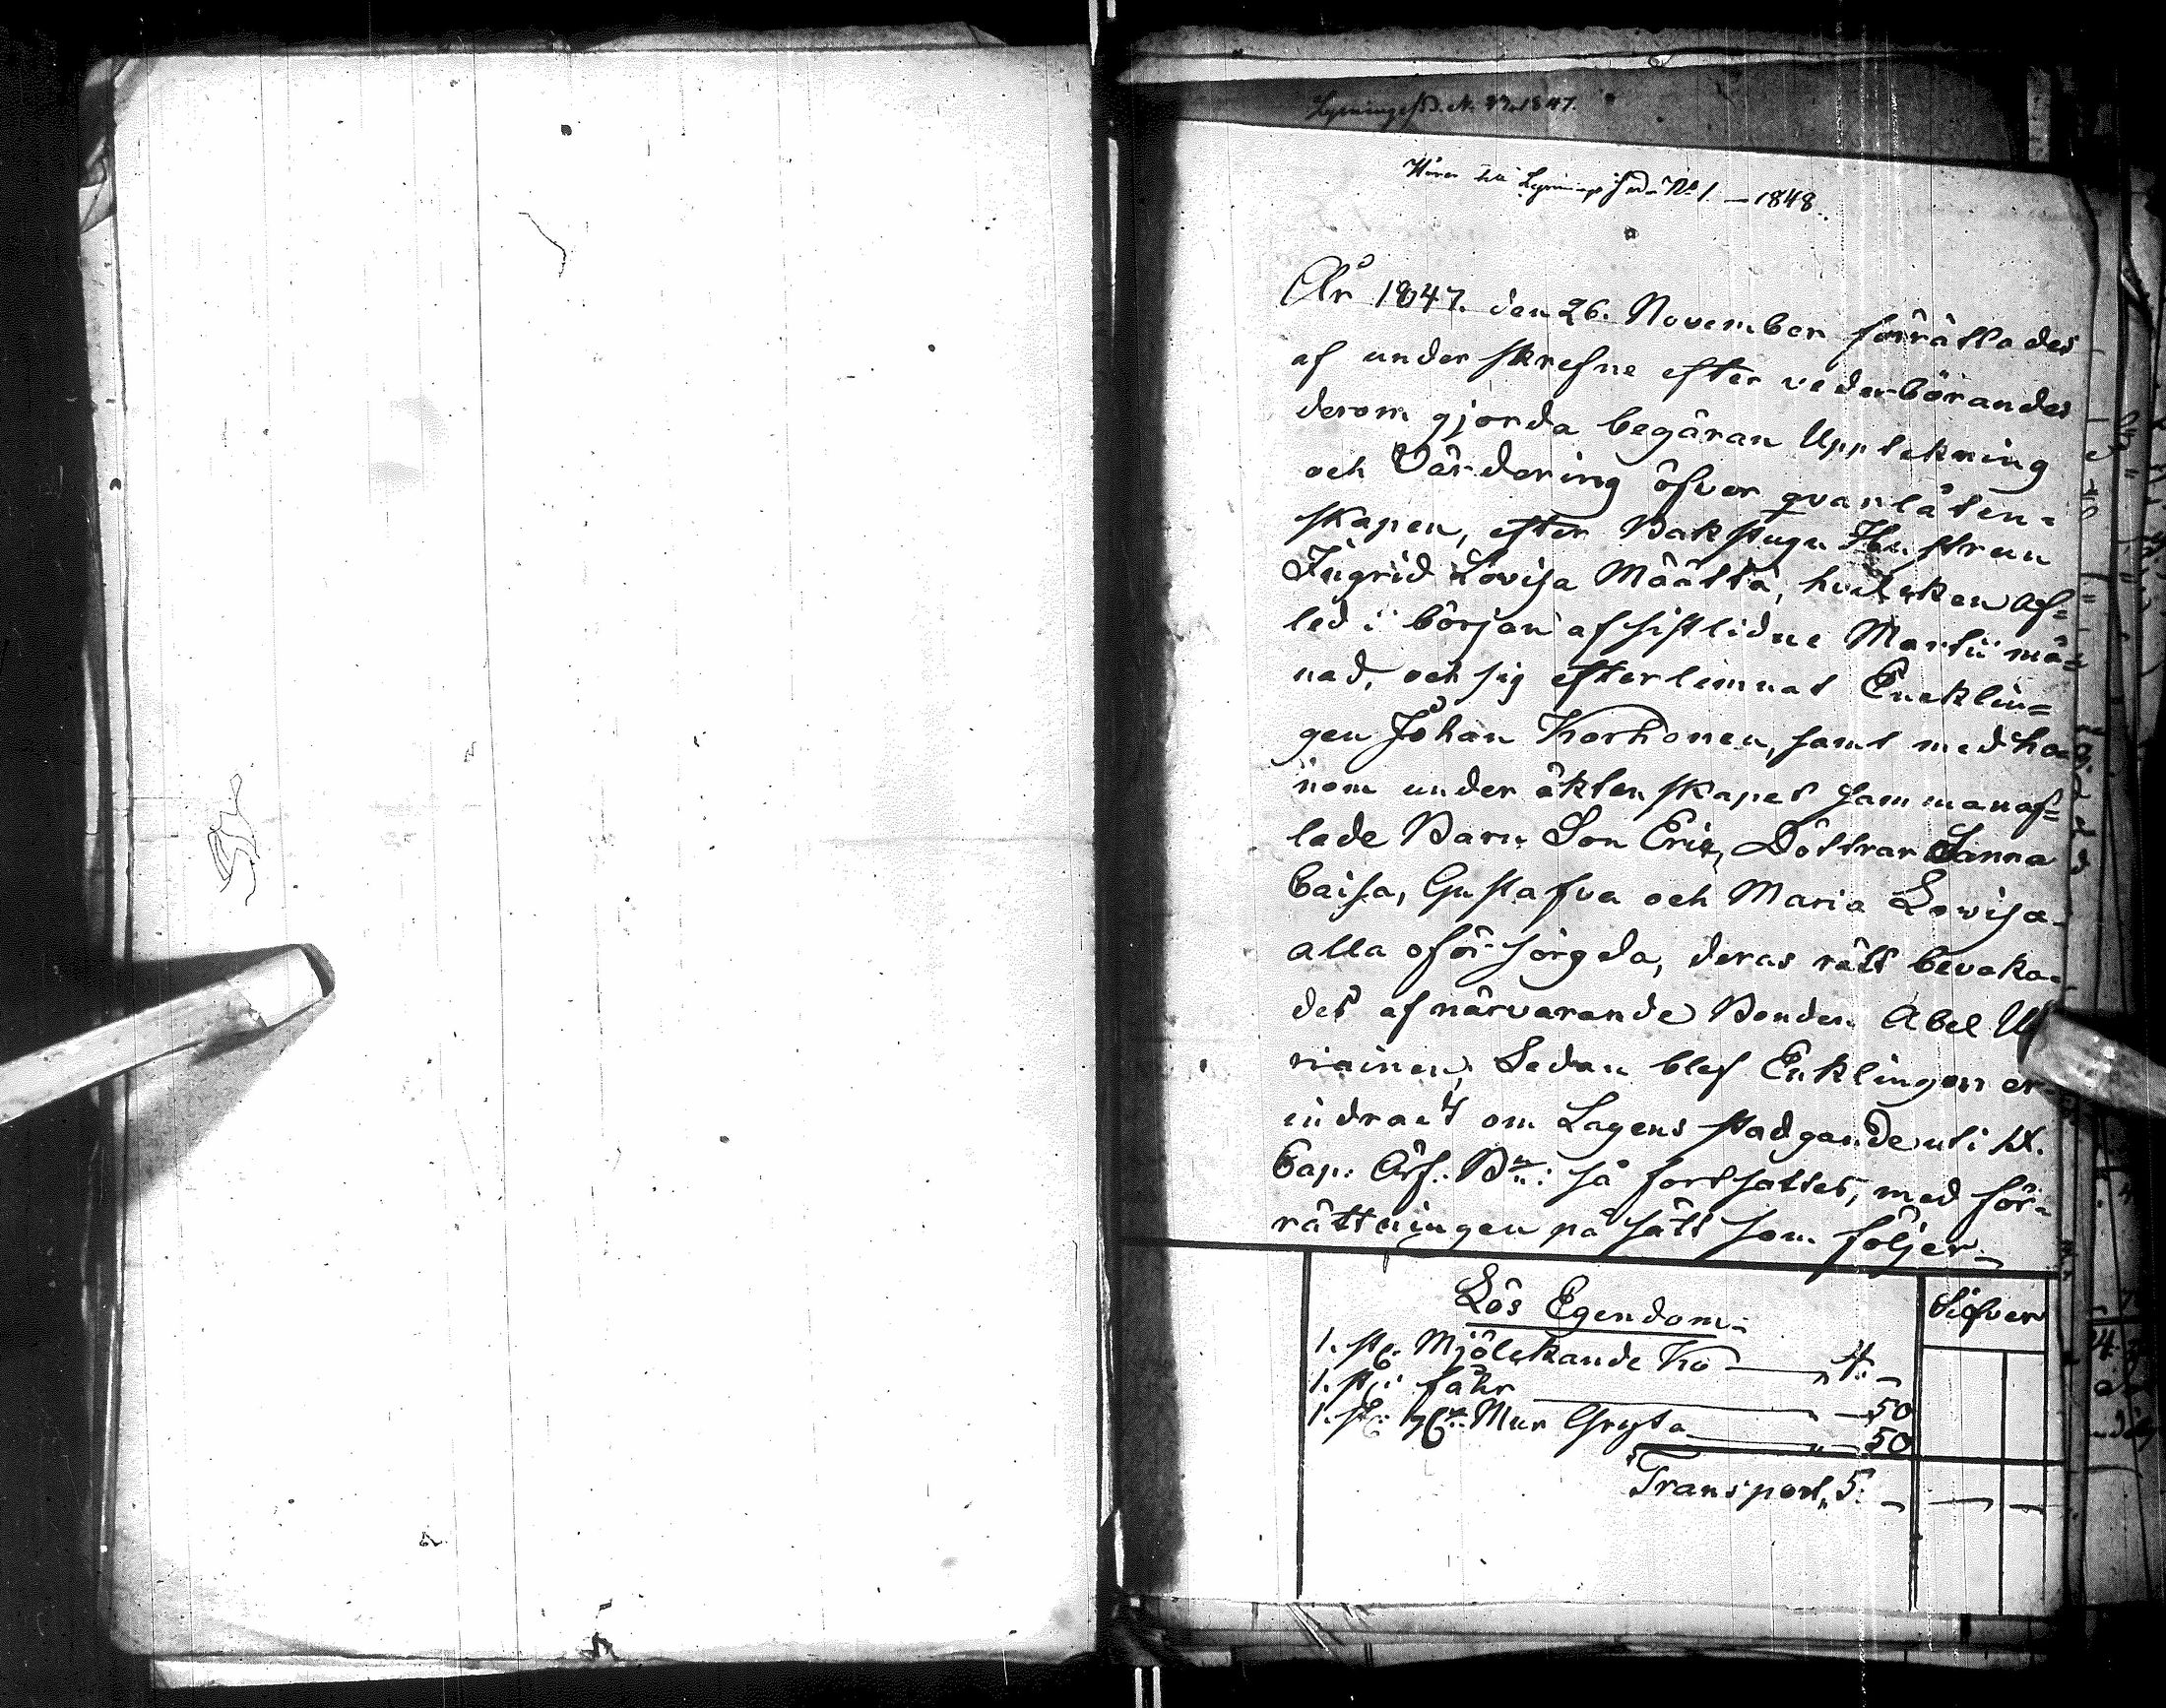 1847.
Hörer till No 1. — 1848.
År 1847. den 26. November förrättades
af under skrefne efter vederbörandes
derom gjorda begäran Upptekning
och Värdering öfver qvarlåten-
skapen, efter Bakstugu Hustrun
Ingrid Lovisa Määttä, hvilcken af=
led i början af sistlidne Martii må=
nad, och sig efterlemnat Encklin=
gen Johan Korhonen, samt med ho=
nom under äktenskapet samman af=
lade Barn Son Eric, Döttrar Sanna
Caisa, Gustafva och Maria Lowisa
alla oförsörgda, deras rätt bevaka-
des af närvarande Bonden Abel
riainen, Sedan blef Enklingen er-
indrat om Lagens stadgande uti IX.
Cap: Ärf: Bn: så fortsattes, med för-
rättningen på sätt som följer
Lös Egendom
Silfver
1. st: Mjölckande Ko — 4. —
1. st: fåhr — 50
1. st: Mur Gryta — 50
Transport, 5. — — —